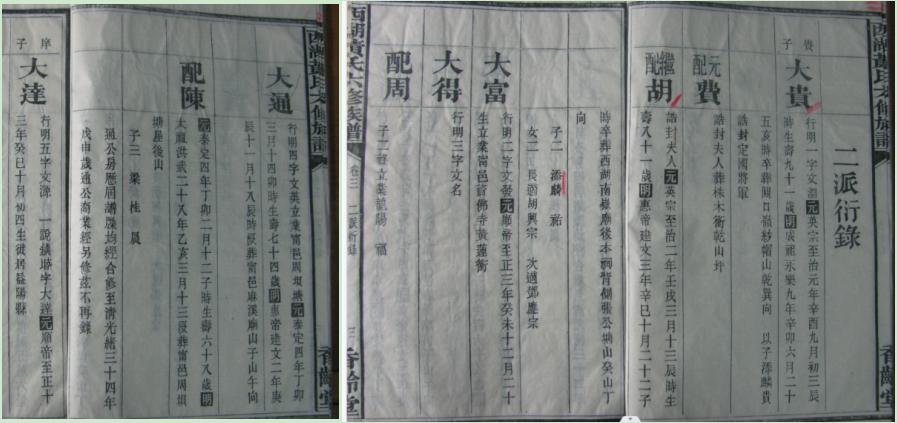 二派衍錄
大貴
行明一字文淵元英宗至治元年辛酉九月初三辰
時生壽九十一歲明成祖永樂九年辛卯六月二十
五亥時卒葬 紗帽山乾巽向 以子添麟貴
誥封定國將軍
元配費
誥封夫人葬株木衝乾山
繼配胡
誥封夫人元英宗至治二年壬戌三月十三辰時生
壽八十一歲明惠帝建文三年辛巳十月二十二子
時卒葬西湖南嶽廟後本祠背側張公塘山癸山丁
向
子二 添麟 祐
女二 長適胡興宗 次適鄧應宗
大富
行明二字文 元順帝至正三年癸未十二月二十
生立業富邑資佛寺黃蓮衝
大得
行明三字文名
配周
子二 立業 陽 福
西湖黃氏六修族譜
卷三 二派衍錄 三
香齡堂
大通
行明四字文英立業富邑周壩塘元泰定四年丁卯
三月十四卯時生壽七十四歲明惠帝建文二年庚
辰十一月十八辰時歿葬富邑麻溪廟山子山午向
配陳
元泰定四年丁卯二月十二子時生壽六十八歲明
太祖洪武二十八年乙亥三月十三歿葬富邑周壩
塘屋後山
子三 梁 桂 晨
通公房歷屆譜牒均經合修至清光緒三十四年
戊申歲通公裔業經另修茲不再錄
大達
行明五字文源 一說鎮 字大達元順帝至正十
三年癸巳十月初四生徙居益陽縣